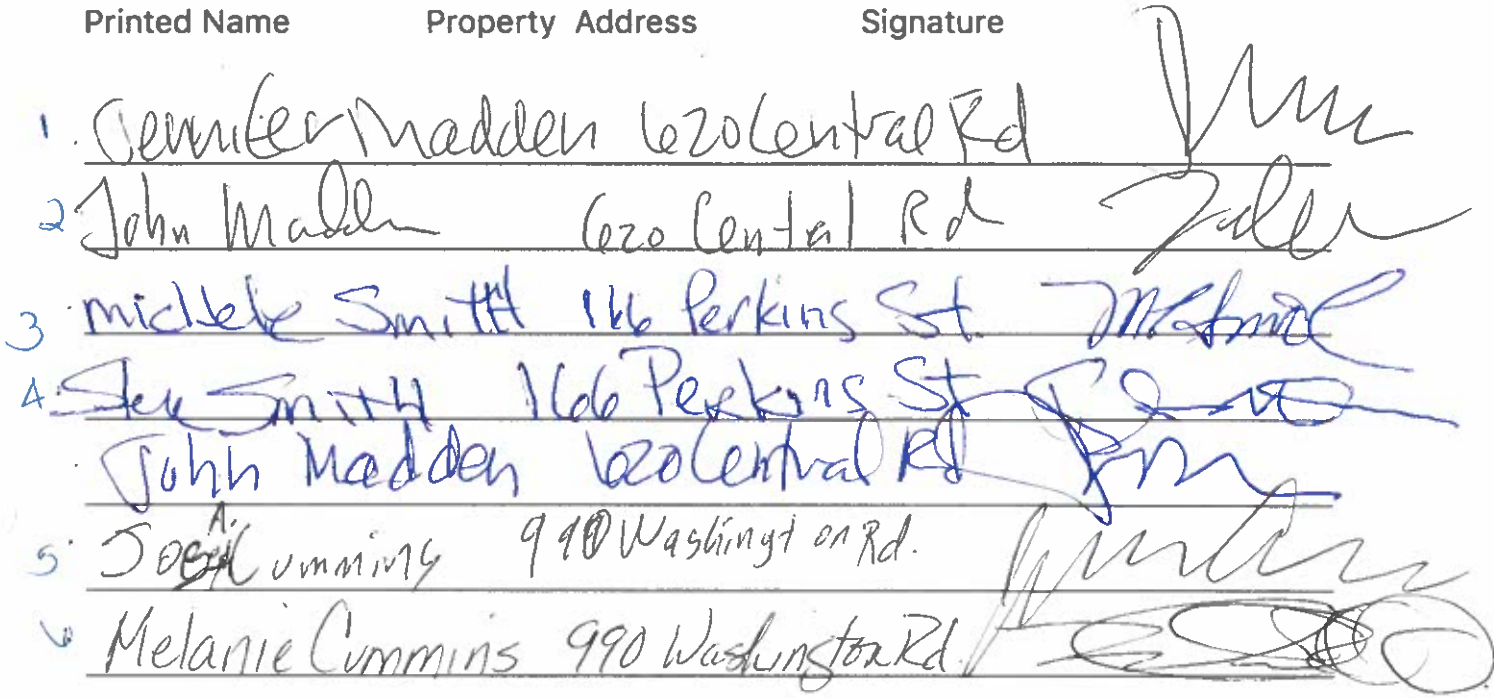 Printed Name Property Address Signature
1. Jennifer Madden 620 Central Rd
2 John Madden 620 Central Rd
3 michele Smith 166 Perkins St.
4. Smith 166 Perkins St
John Madden 620 Central Rd
5 Joe A. Cummings 990 Washington Rd.
6 Melanie Cummins 990 Washington Rd.